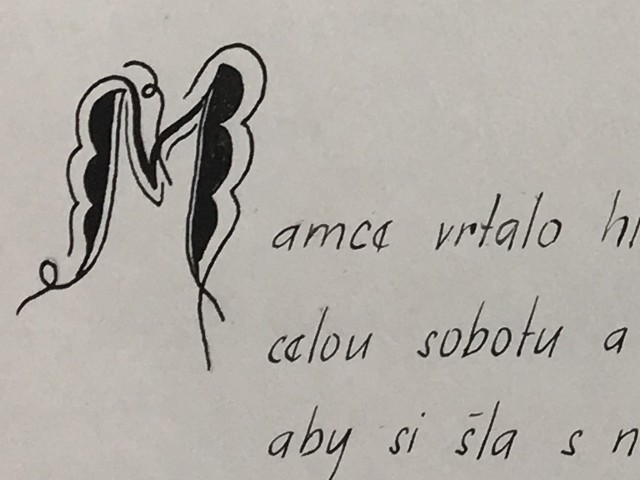 Mamce vrtalo
celou sobotu a
aby si šla s